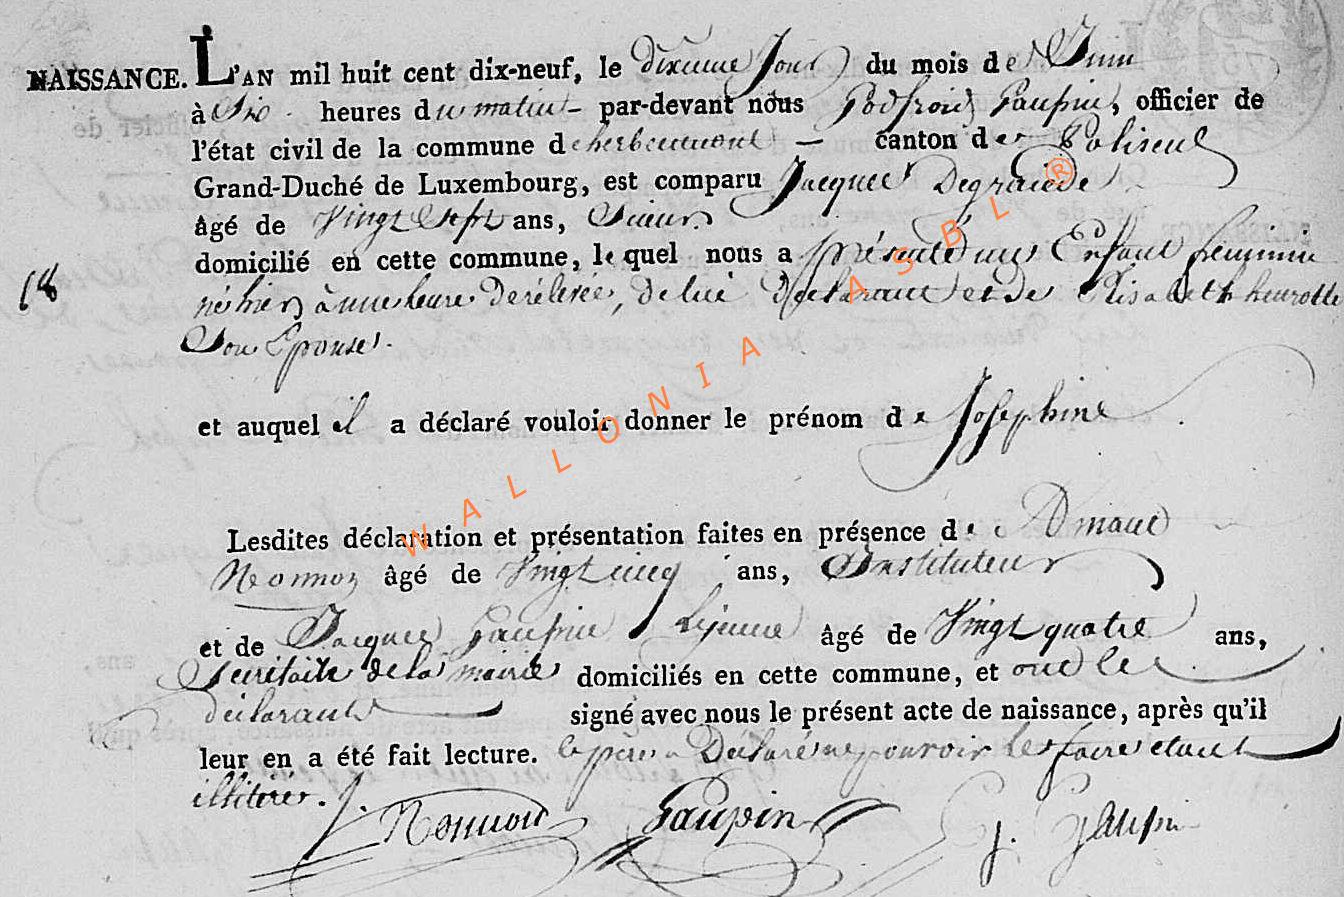 NAISSANCE. L'AN mil huit cent dix-neuf, le dixieme Jour du mois de Juin
à Six heures du matin par-devant nous Godfroid Gaupin, officier de
l'état civil de la commune d'herbeumont canton de Paliseul
Grand-Duché de Luxembourg, est comparu Jacques Degraide
âgé de Vingt Sept ans, Scieur
domicilié en cette commune, lequel nous a présenté un Enfant feminin
18
né hier à une heure de relevée, de lui Déclarant et de Elisabeth heurotte
Son Epouse.
et auquel il a déclaré vouloir donner le prénom de Josephine
Lesdites déclaration et présentation faites en présence de
Nonnon âgé de Vingt cinq ans, Instituteur
et de Jacques Gaupin Lejeune âgé de Vingt quatre ans,
Secretaire de la mairie domiciliés en cette commune, et
declarant signé avec nous le présent acte de naissance, après qu'il
leur en a été fait lecture. le père a Déclaré ne pouvoir le faire etant
illiteré.
Nonnon Gaupin J. Gaupin
WALLONIA ASBL ®